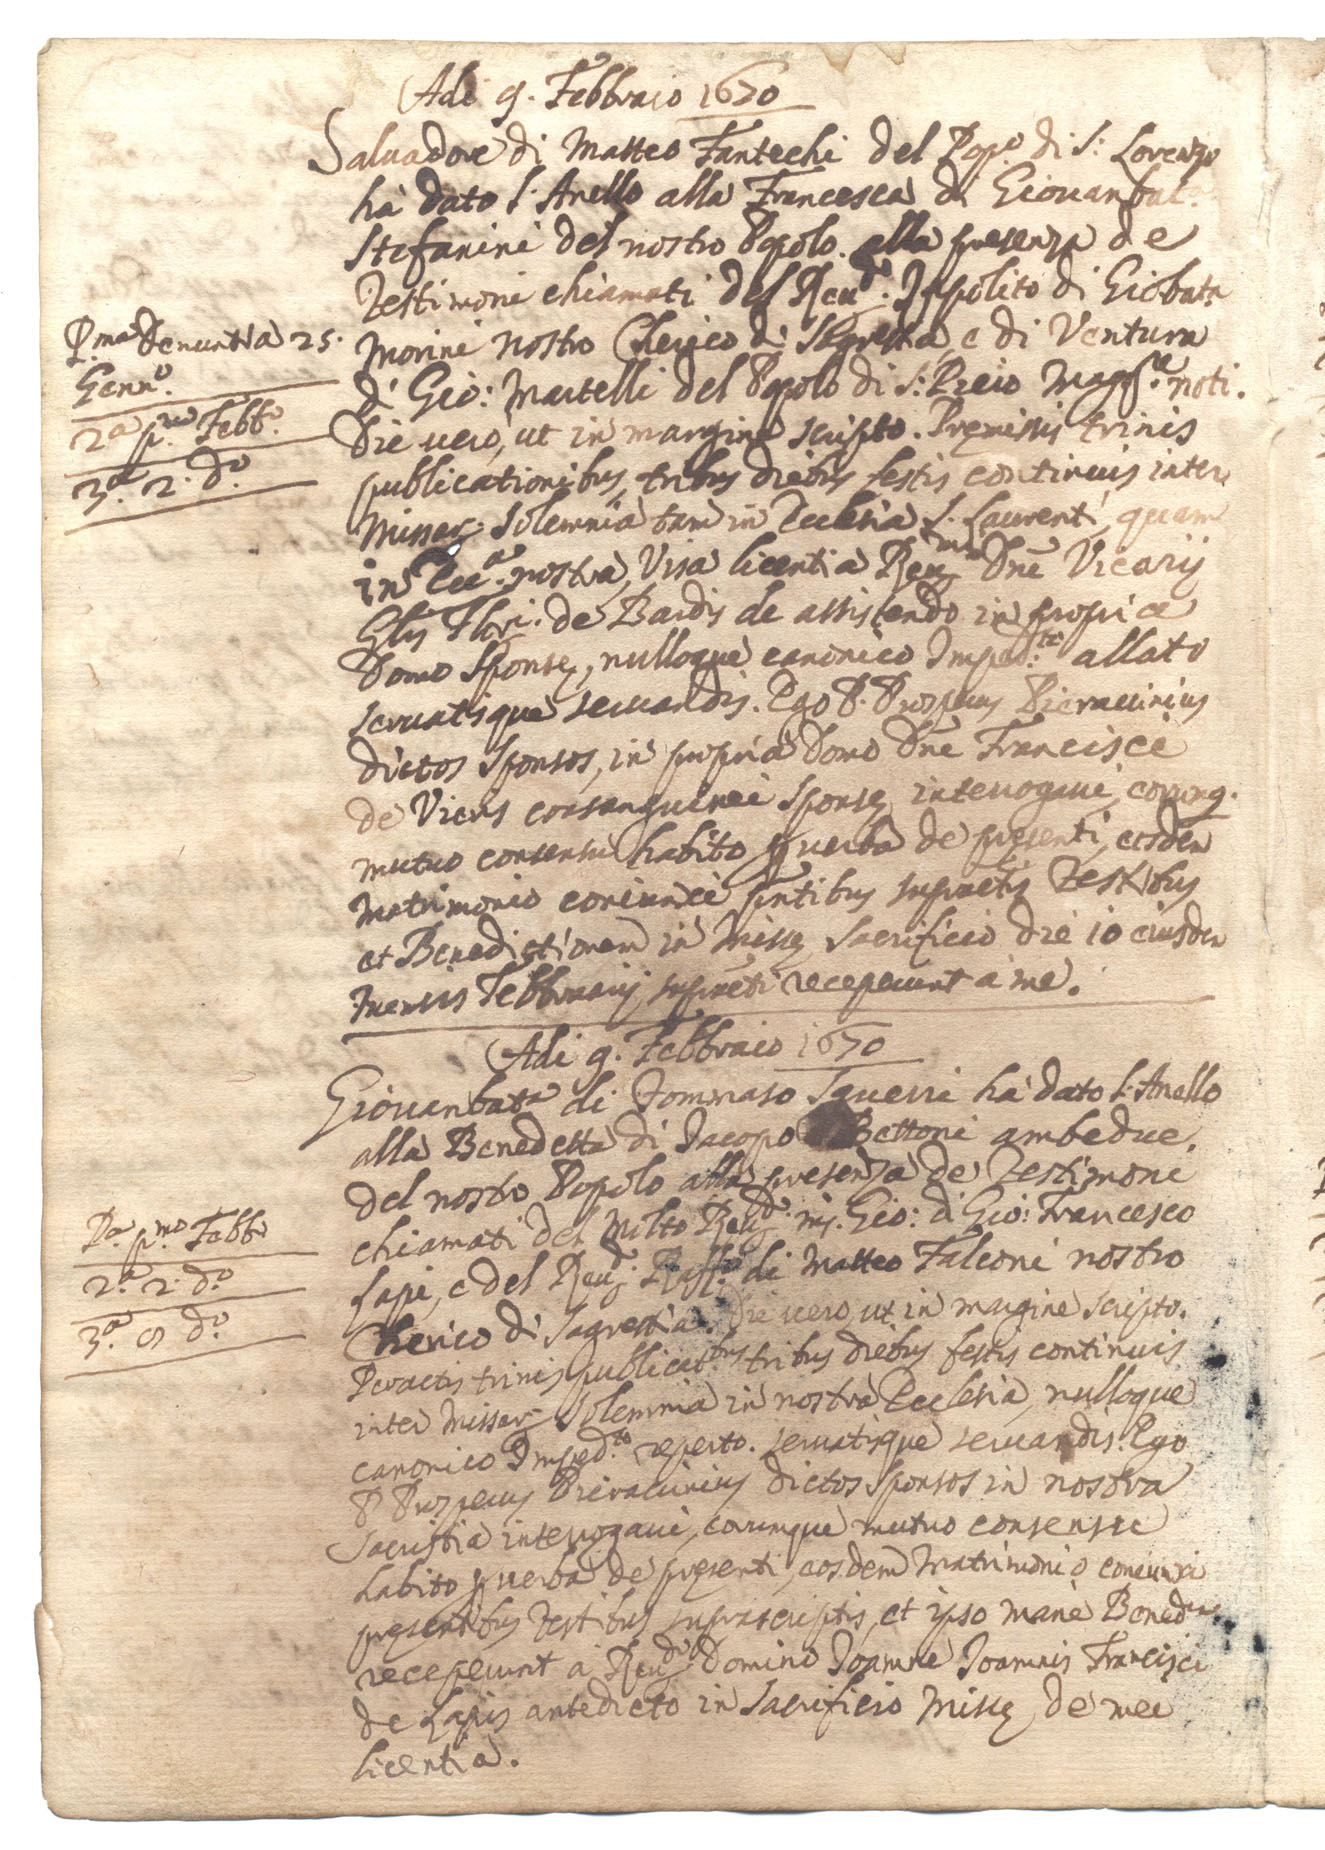 Adi 9. Febbraio 1670
Saluadore di Matteo Fantechi del Pop.o di S: Lorenzo
hà dato l'Anello alla Francesca di Giouanbat.a
Stefanini del nostro Popolo. alla presenza de
Testimoni chiamati del Reud.o Ippolito di Giobata
Morini nostro Cherico di Sagrestia, e di Ventura
di Gio: Martelli del Popolo di S: Piero Magg.re noti.
Die uero, ut in margine scripto. Premissis trinis
publicationibus, tribus diebus festis continuis inter
Missar: solemnia tam in Ecclesia S. Laurenti, quam
in Ecc.a nostra, Visa licentia Reu.mi Dni Vicarij
de Bardis de assistendo in propria
Domo Sponsę, nulloque canonico Imped.to allato
seruatisque seruandis. Ego P. Prosperus Pieraccinius
dictos Sponsos, in propria Domo Dni Francisci
de Vicris consanguinei Sponsę interrogaui, eorumq.
mutuo consensu habito p uerba de pręsenti, eosdem
Matrimonio coniunxi pntibus supractis Testibus
et Benedictionem in Missę Sacrificio die 10 eiusdem
Mensis Febbruarij supracti receperunt a me.
Adi 9. Febbraio 1670
Giouanbata di Tommaso Sguerri hà dato l'Anello
alla Benedetta di Jacopo Bettoni ambedue
del nostro Popolo alla presenza de Testimoni
chiamati del Molto Reud.o m. Gio: di Gio: Francesco
Lapi, e del Reud.o Raff.o di Matteo Falconi nostro
Cherico di Sagrestia. Die uero, ut in margine scripto.
Peractis trinis publicat.bus tribus diebus festis continuis
inter Missar: solemnia in nostra Ecclesia, nulloque
canonico Imped.to reperto. seruatisque seruandis. Ego
P. Prosperus Pieraccinius dictos Sponsos in nostra
Sacristia interrogaui, eorumque mutuo consensu
habito p uerba de pręsenti, eosdem Matrimonio coniunxi
pręsentibus Testibus suprascriptis, et ipso mane Bened.nem
receperunt a Reud.o Domino Joanne Joannis Francisci
de Lapis antedicto in Sacrificio Missę de mei
licentia.
P.ma Denuntia 25.
Genn.o
2.a p.mo Febb.o
3.a 2. d.o
P.a p.mo Febb.o
2.a 2. d.o
3.a 9 d.o